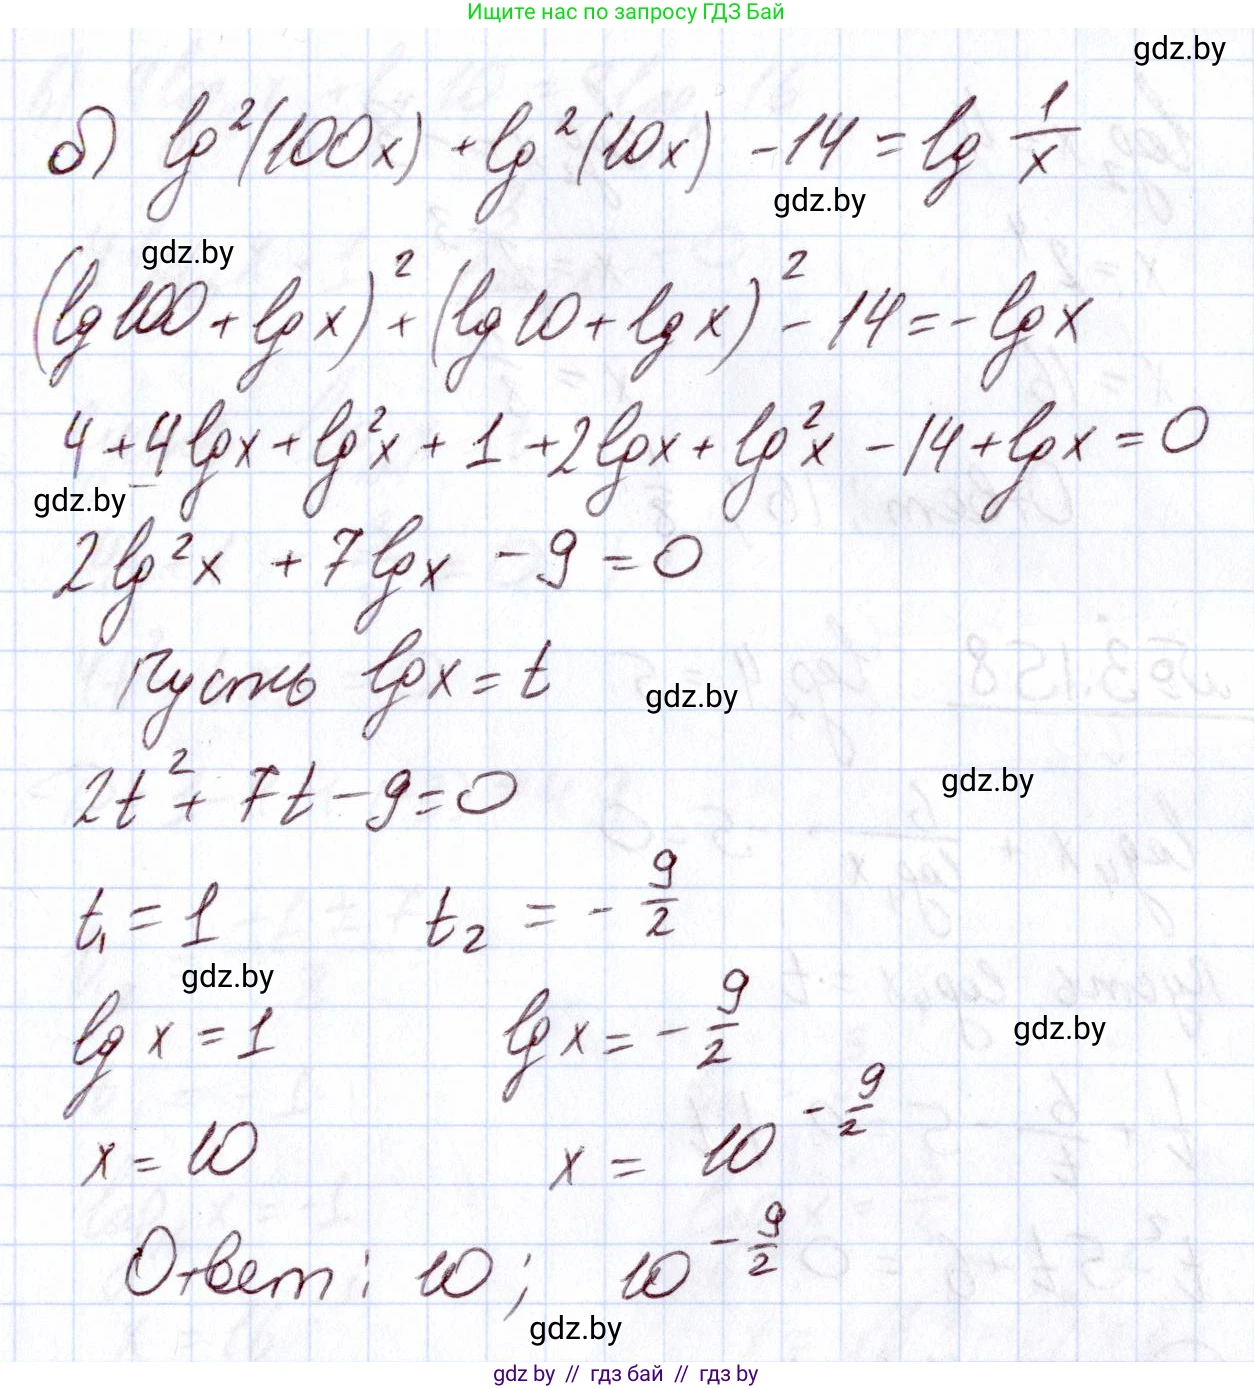 Ищите нас по запросу ГДЗ Бай
gdz.by
б) lg²(100x) + lg²(10x) - 14 = lg 1/x
gdz.by
gdz.by
(lg100 + lgx)² + (lg10 + lgx)² - 14 = - lgx
4 + 4lgx + lg²x + 1 + 2lgx + lg²x - 14 + lgx = 0
gdz.by
2lg²x + 7lgx - 9 = 0
Пусть lgx = t
gdz.by
gdz.by
2t² + 7t - 9 = 0
t₁ = 1 t₂ = - 9/2
gdz.by
lg x = 1 lg x = - 9/2
gdz.by
x = 10 x = 10^(-9/2)
Ответ: 10; 10^(-9/2)
gdz.by
gdz.by // гдз бай // гдз by